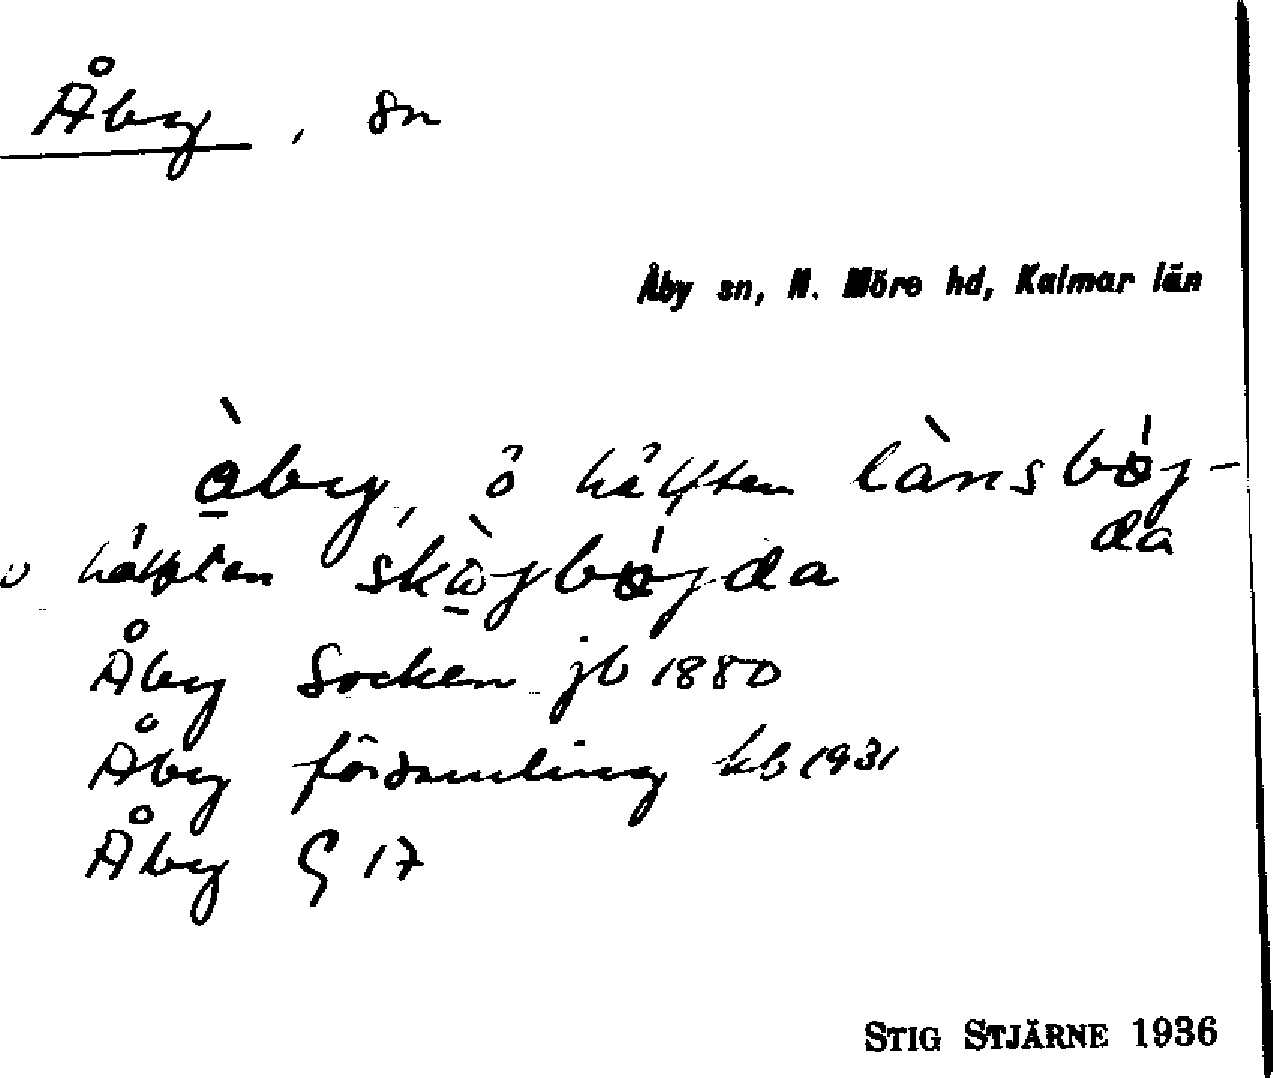 Åby, sn
Åby sn, N. Möre hd, Kalmar län
àby, ò hálften lànsbój-
da
o hálften skàjbójda
Åby Socken jb 1880
Åby församling kb 1931
Åby G 17
STIG STJÄRNE 1936